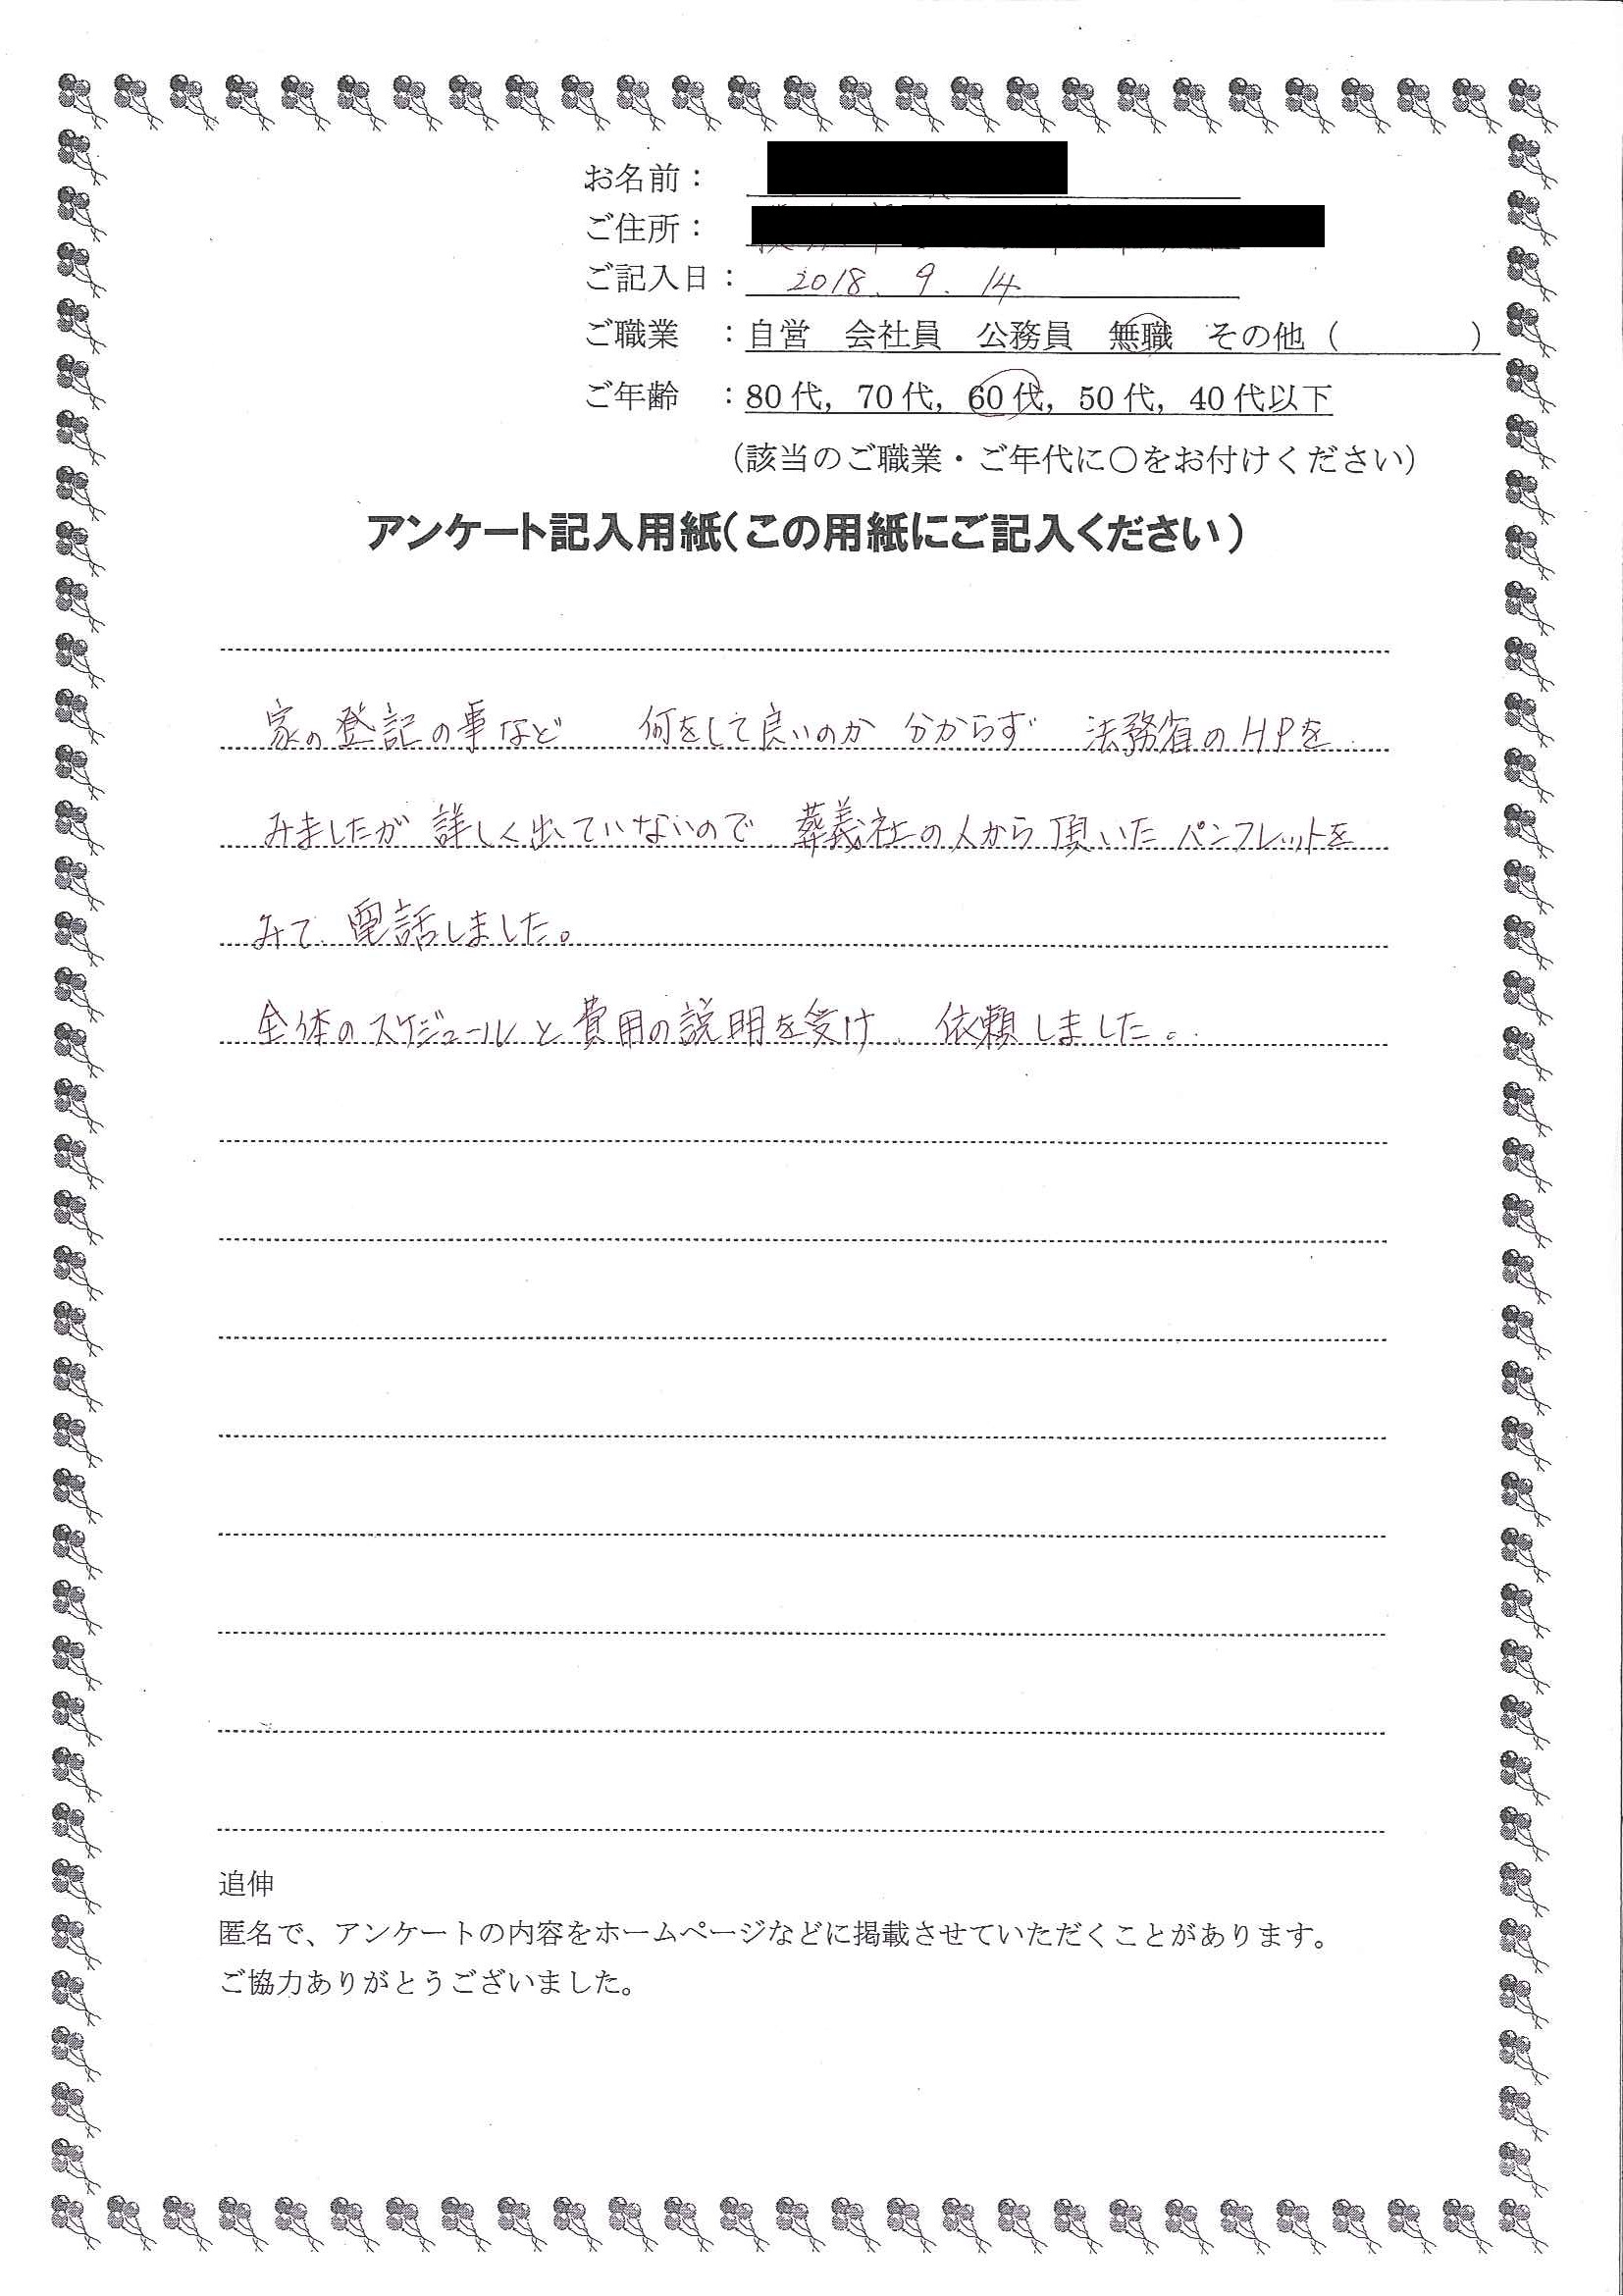 お名前：
ご住所：
ご記入日： 2018. 9. 14
ご職業 ：自営 会社員 公務員 無職 その他（ ）
ご年齢 ：80代，70代，60代，50代，40代以下
（該当のご職業・ご年代に〇をお付けください）
アンケート記入用紙（この用紙にご記入ください）
家の登記の事など 何をして良いのか 分からず 法務省のHPを
みましたが 詳しく出ていないので 葬義社の人から頂いた パンフレットを
みて、電話しました。
全体のスケジュールと費用の説明を受け、依頼しました。
追伸
匿名で、アンケートの内容をホームページなどに掲載させていただくことがあります。
ご協力ありがとうございました。